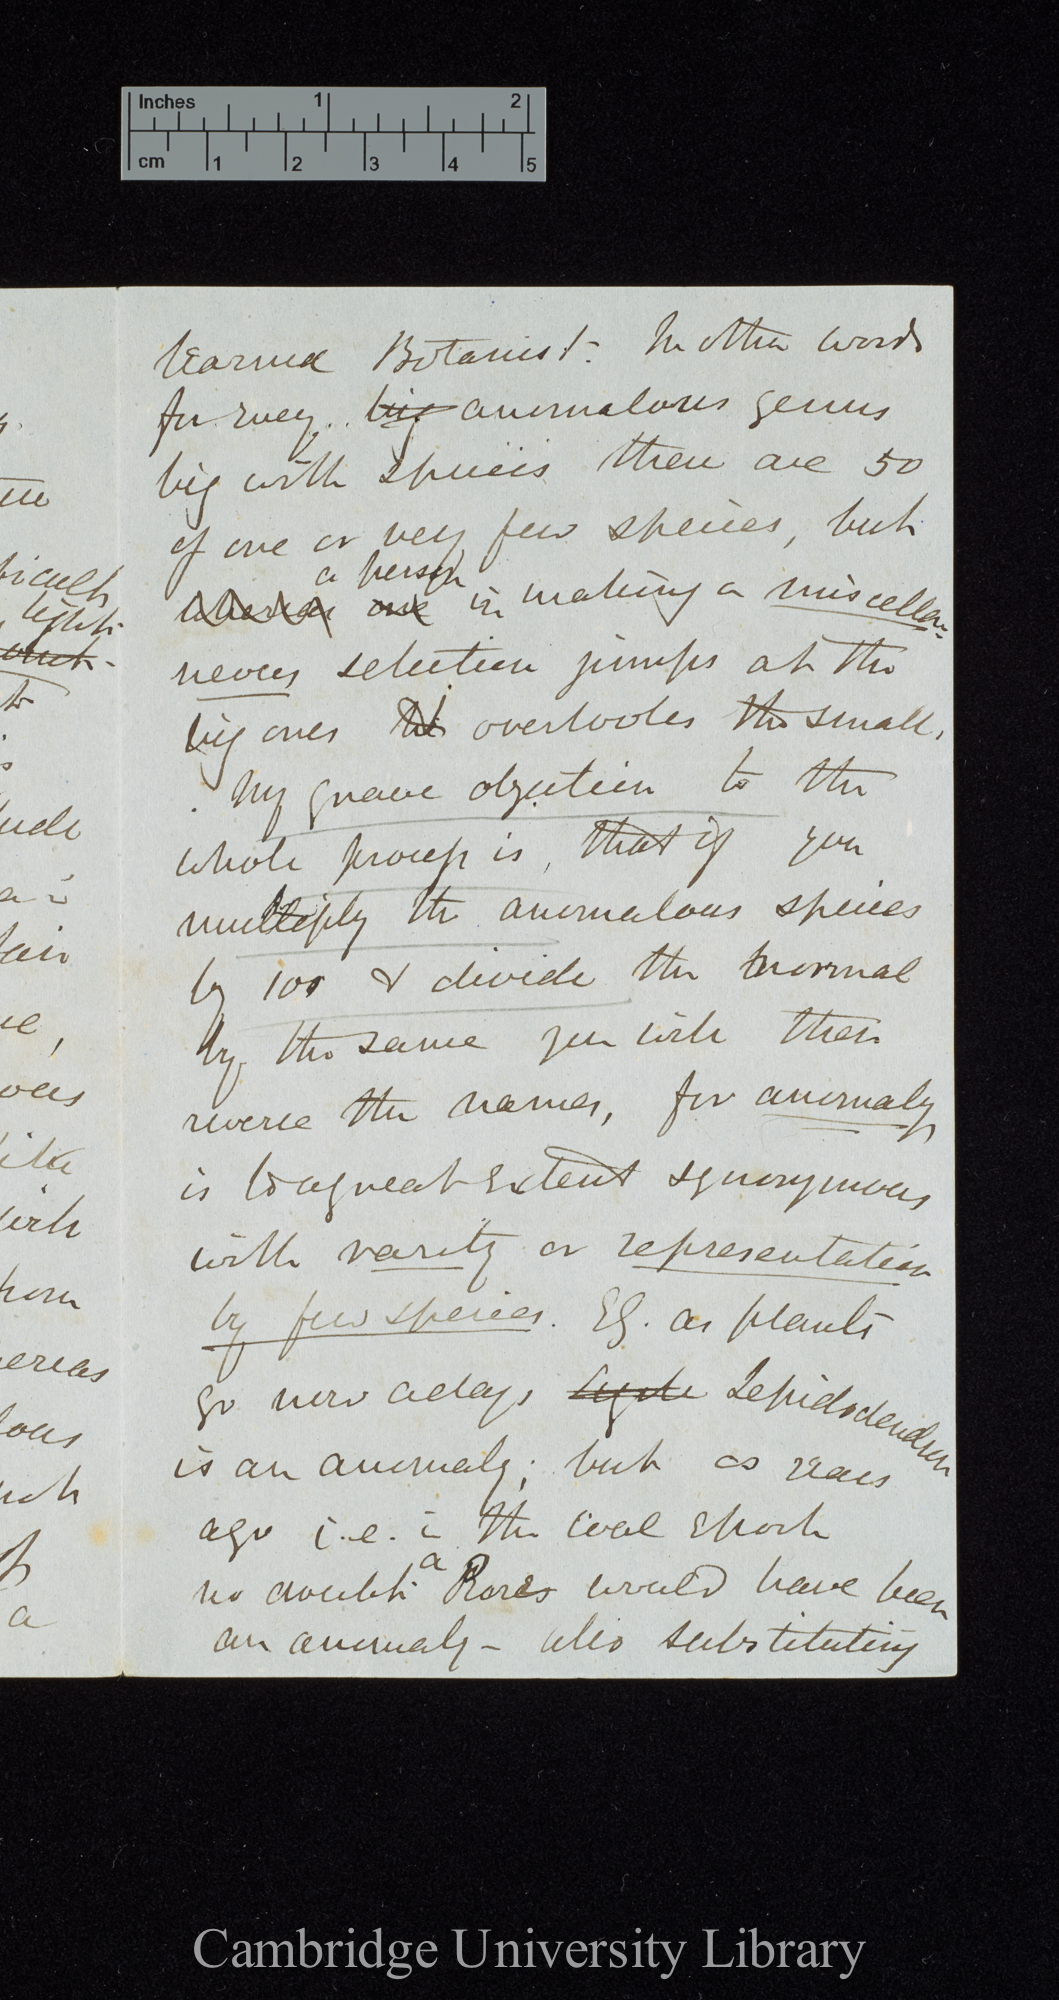 Inches 1 2
cm 1 2 3 4 5
learned Botanist. In other words
for every big anomalous genus
big with species there are 50
of one or very few species, but
a person
whereas one in making a miscella-
neous selection jumps at the
big ones & overlooks the small.
My grave objection to the
whole proceſs is, that if you
multiply the anomalous species
by 100 & divide the normal
by the same you will then
reverse the names, for anomaly
is to a great extent synonymous
with rarity or representation
by few species. Eg. as plants
go now adays Lepidodendron
is an anomaly; but as years
ago i.e. i the coal Epoch
a
no doubt Roses would have been
an anomaly – also substituting
ficult
light
lude
fair
ve,
ous
like
with
from
hereas
lous
such
of
a
Cambridge University Library